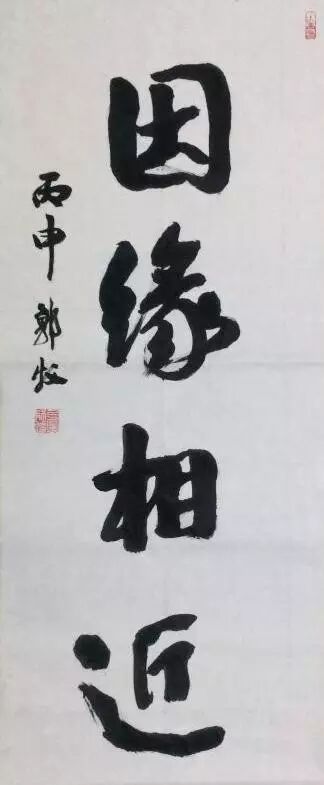 因缘相近
丙申 郭牧